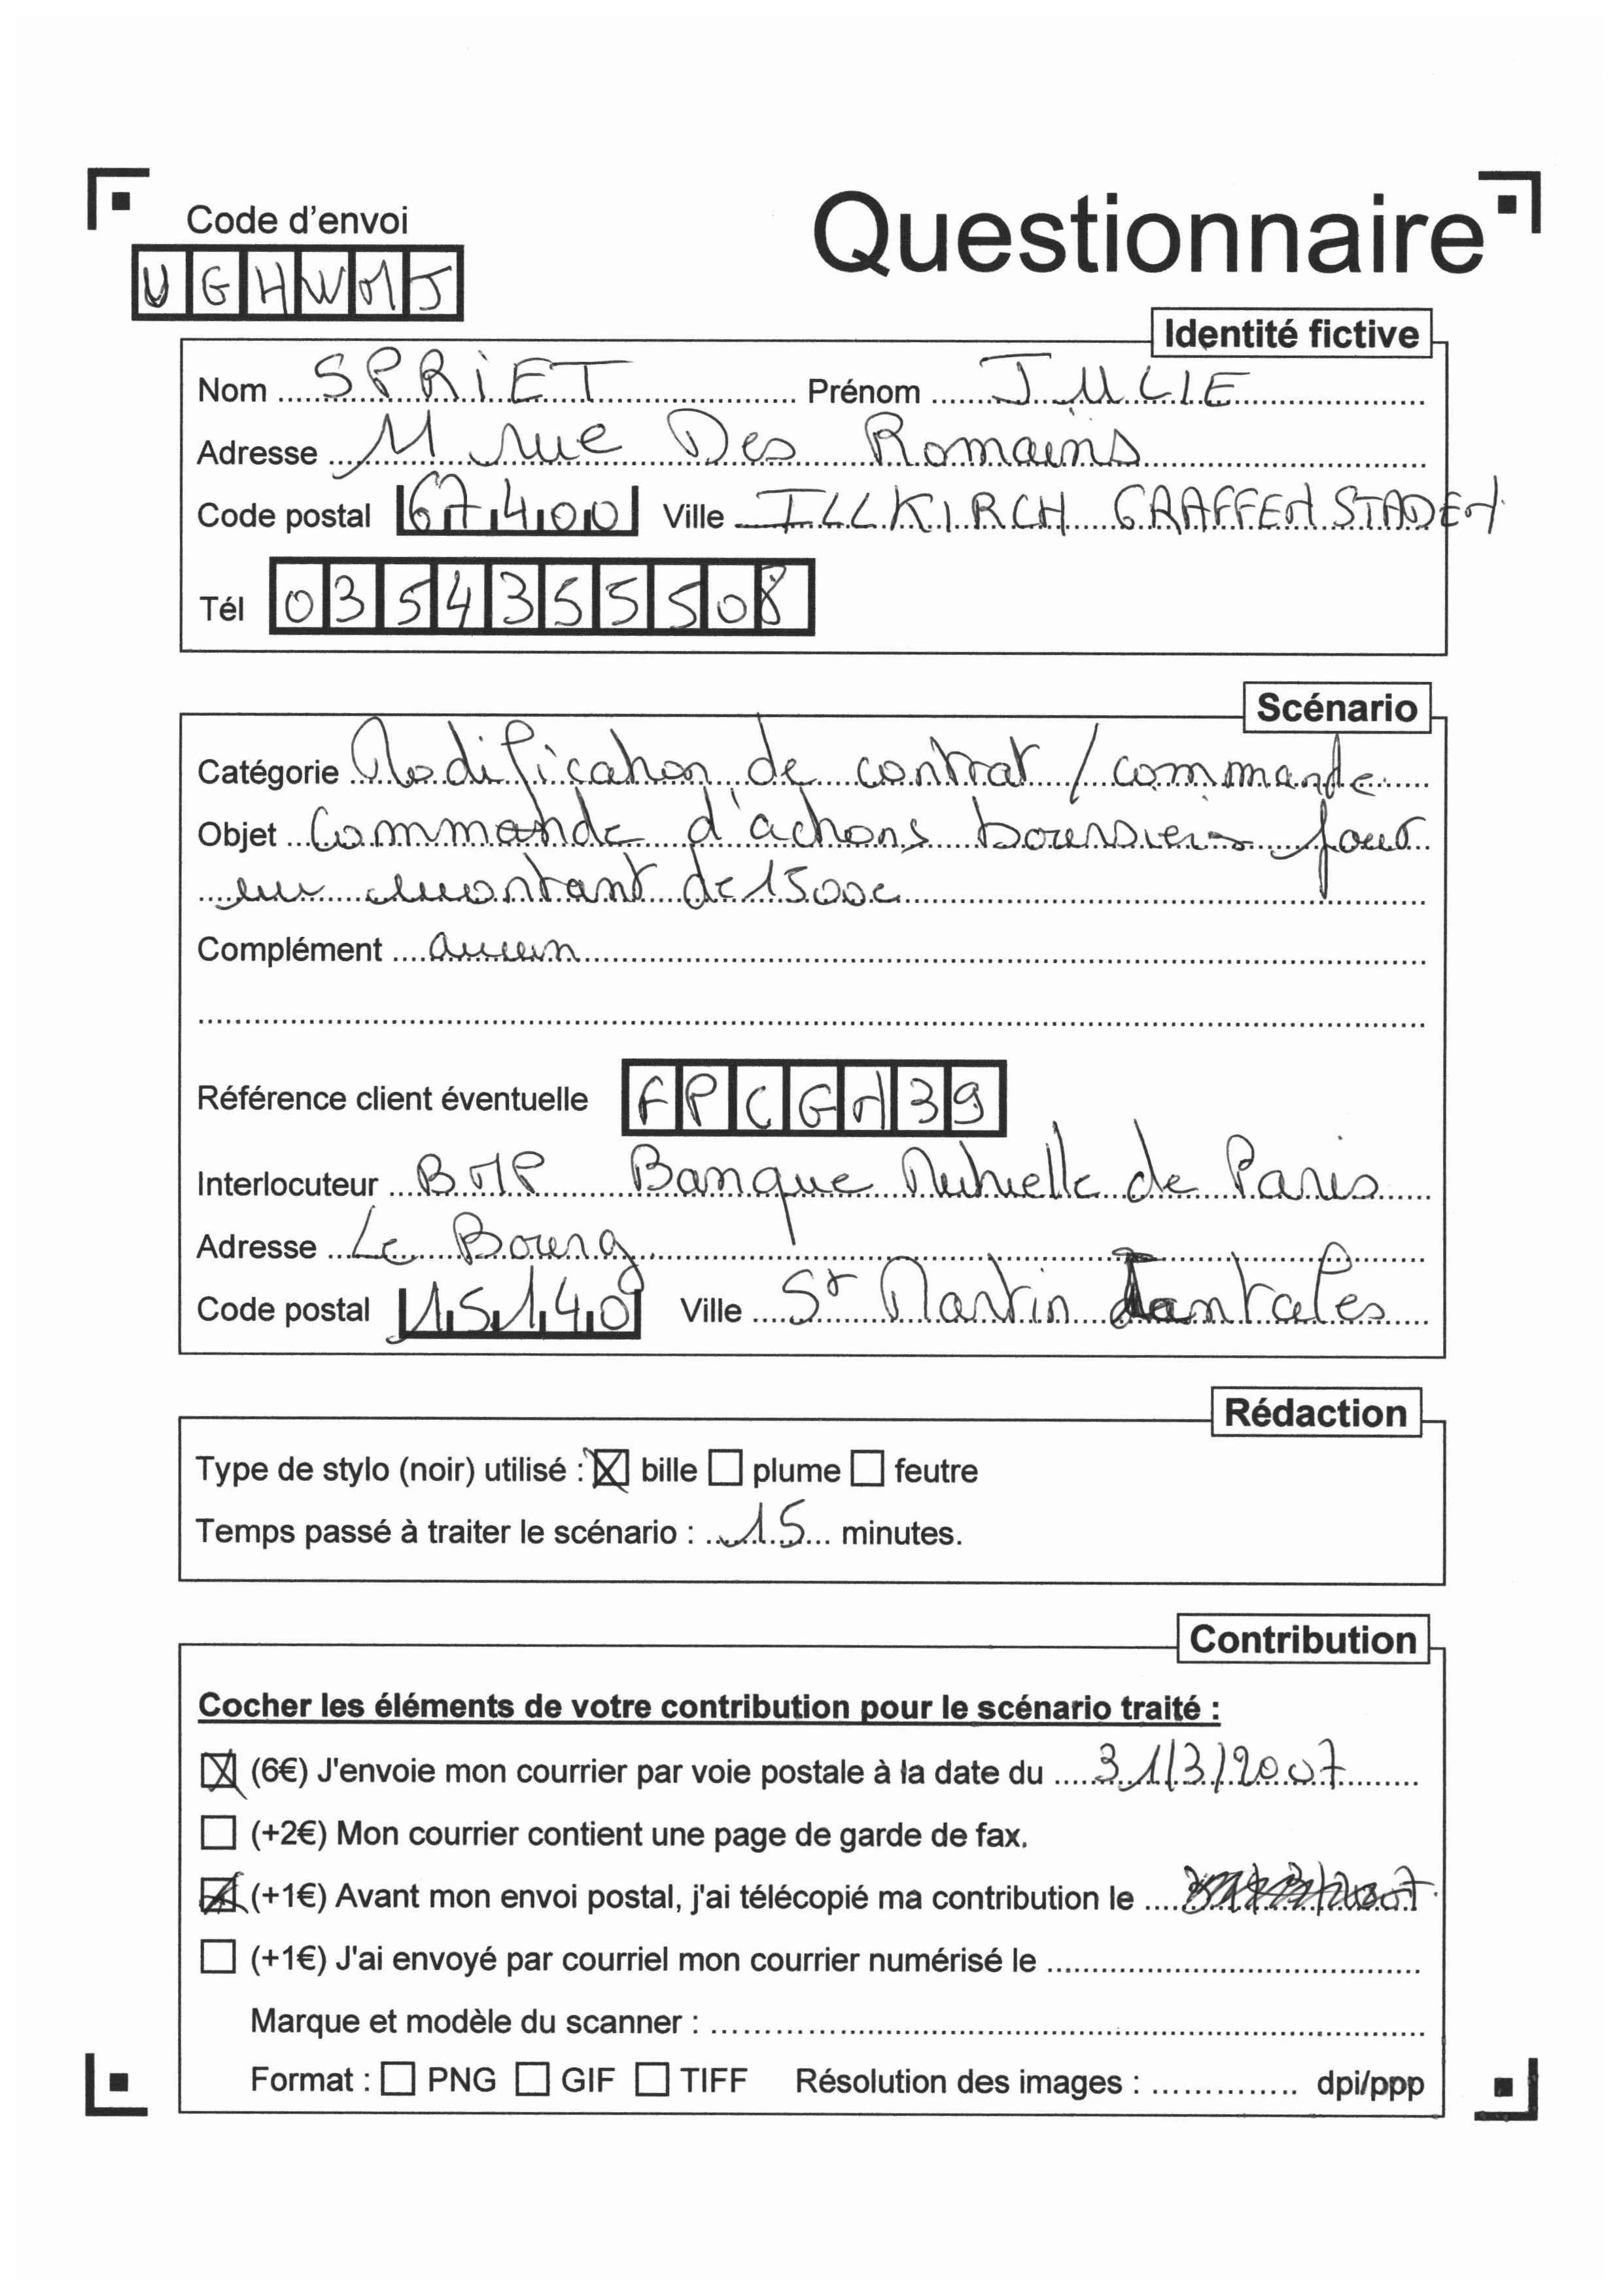 Code d'envoi
Questionnaire
UGHWMJ
Identité fictive
Nom SPRIET Prénom JULIE
Adresse 11 rue Des Romains
Code postal 67400 Ville ILLKIRCH GRAFFENSTADEN
Tél 0354355508
Scénario
Catégorie Modification de contrat / commande
Objet Commande d'actions boursiers pour
un montant de 1500€
Complément aucun
Référence client éventuelle FPCGN39
Interlocuteur BMP Banque Mutuelle de Paris
Adresse Le Bourg
Code postal 15140 Ville St Martin Cantales
Rédaction
Type de stylo (noir) utilisé : bille plume feutre
Temps passé à traiter le scénario : 15 minutes.
Contribution
Cocher les éléments de votre contribution pour le scénario traité :
(6€) J'envoie mon courrier par voie postale à la date du 31/3/2007
(+2€) Mon courrier contient une page de garde de fax.
(+1€) Avant mon envoi postal, j'ai télécopié ma contribution le
(+1€) J'ai envoyé par courriel mon courrier numérisé le
Marque et modèle du scanner :
Format : PNG GIF TIFF Résolution des images : dpi/ppp